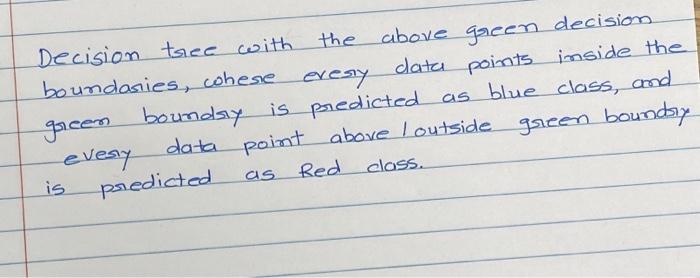 Decision tree with the above green decision
boundaries, where every data points inside the
green boundry is predicted as blue class, and
every data point above / outside green boundry
is predicted as Red class.